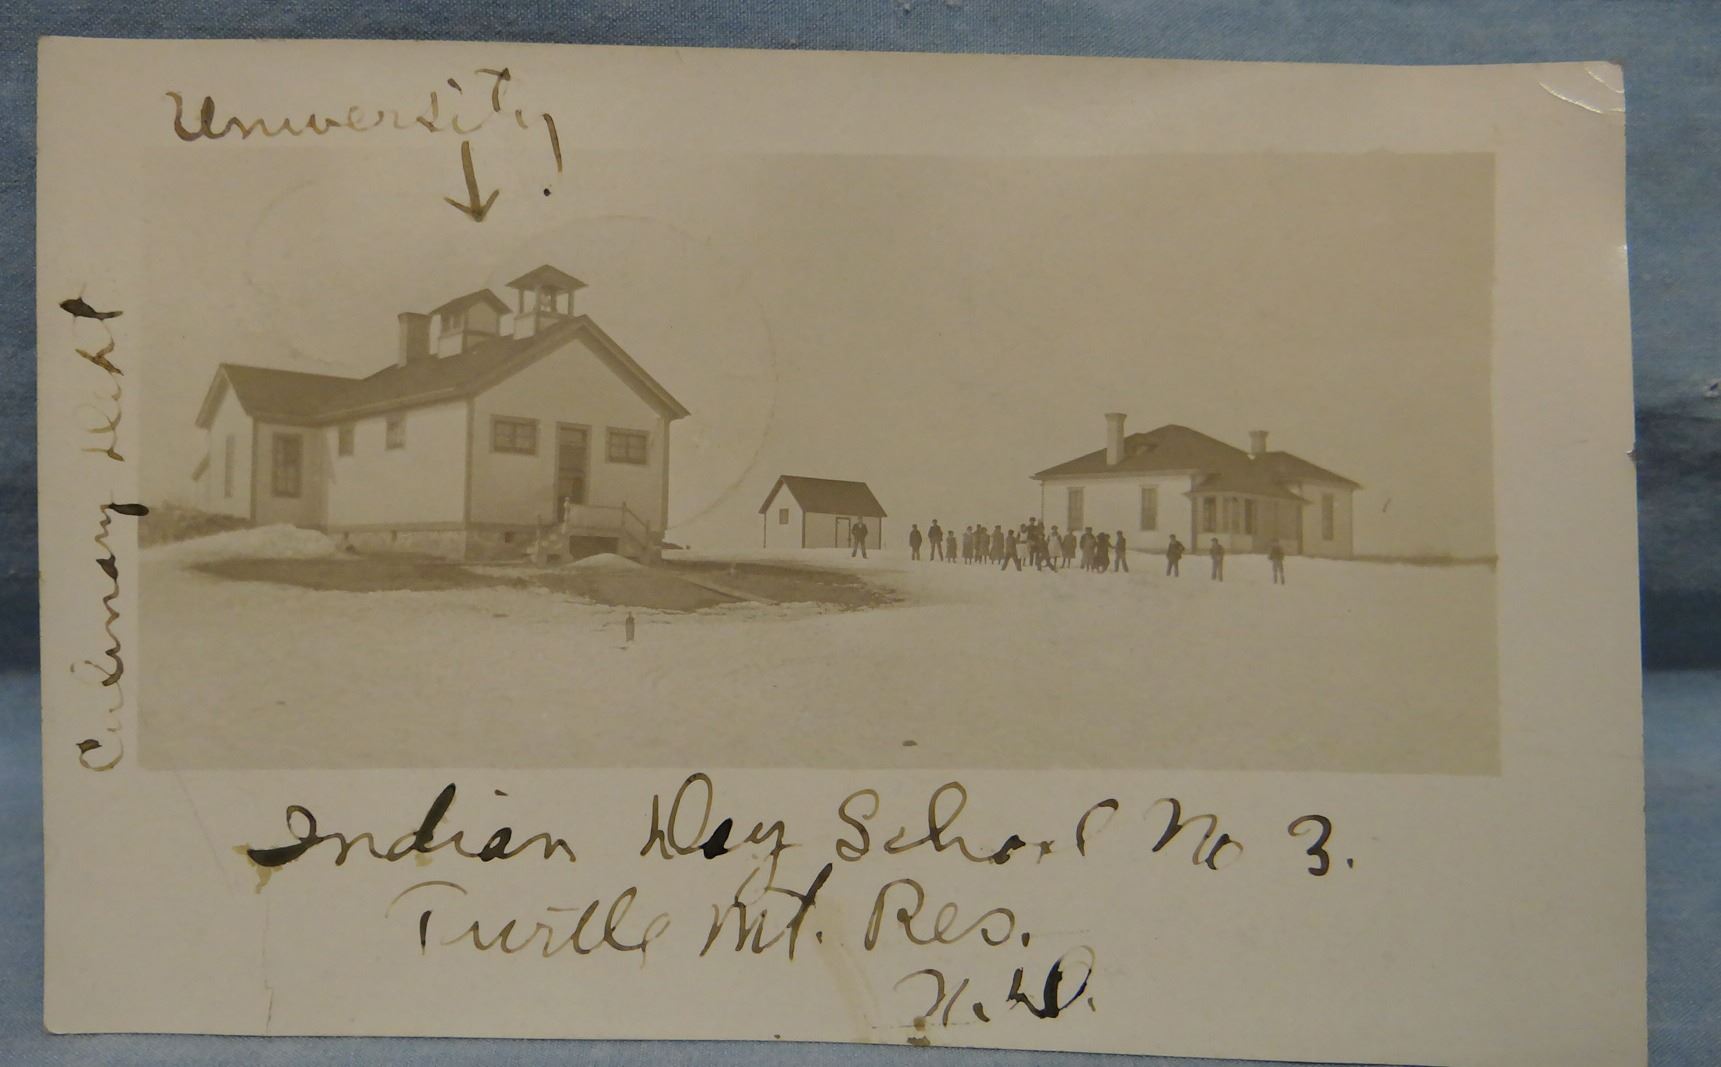 University!
Culinary Dept
Indian Day School No 3.
Turtle Mt. Res.
N.D.